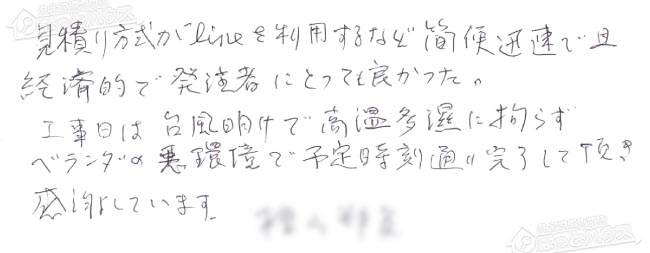 見積り方式がlineを利用するなど簡便迅速で且
経済的で発注者にとっても良かった。
工事日は台風明けで高温多湿に拘らず
ベランダの悪環境で予定時刻通り完了して頂き
感謝しています。